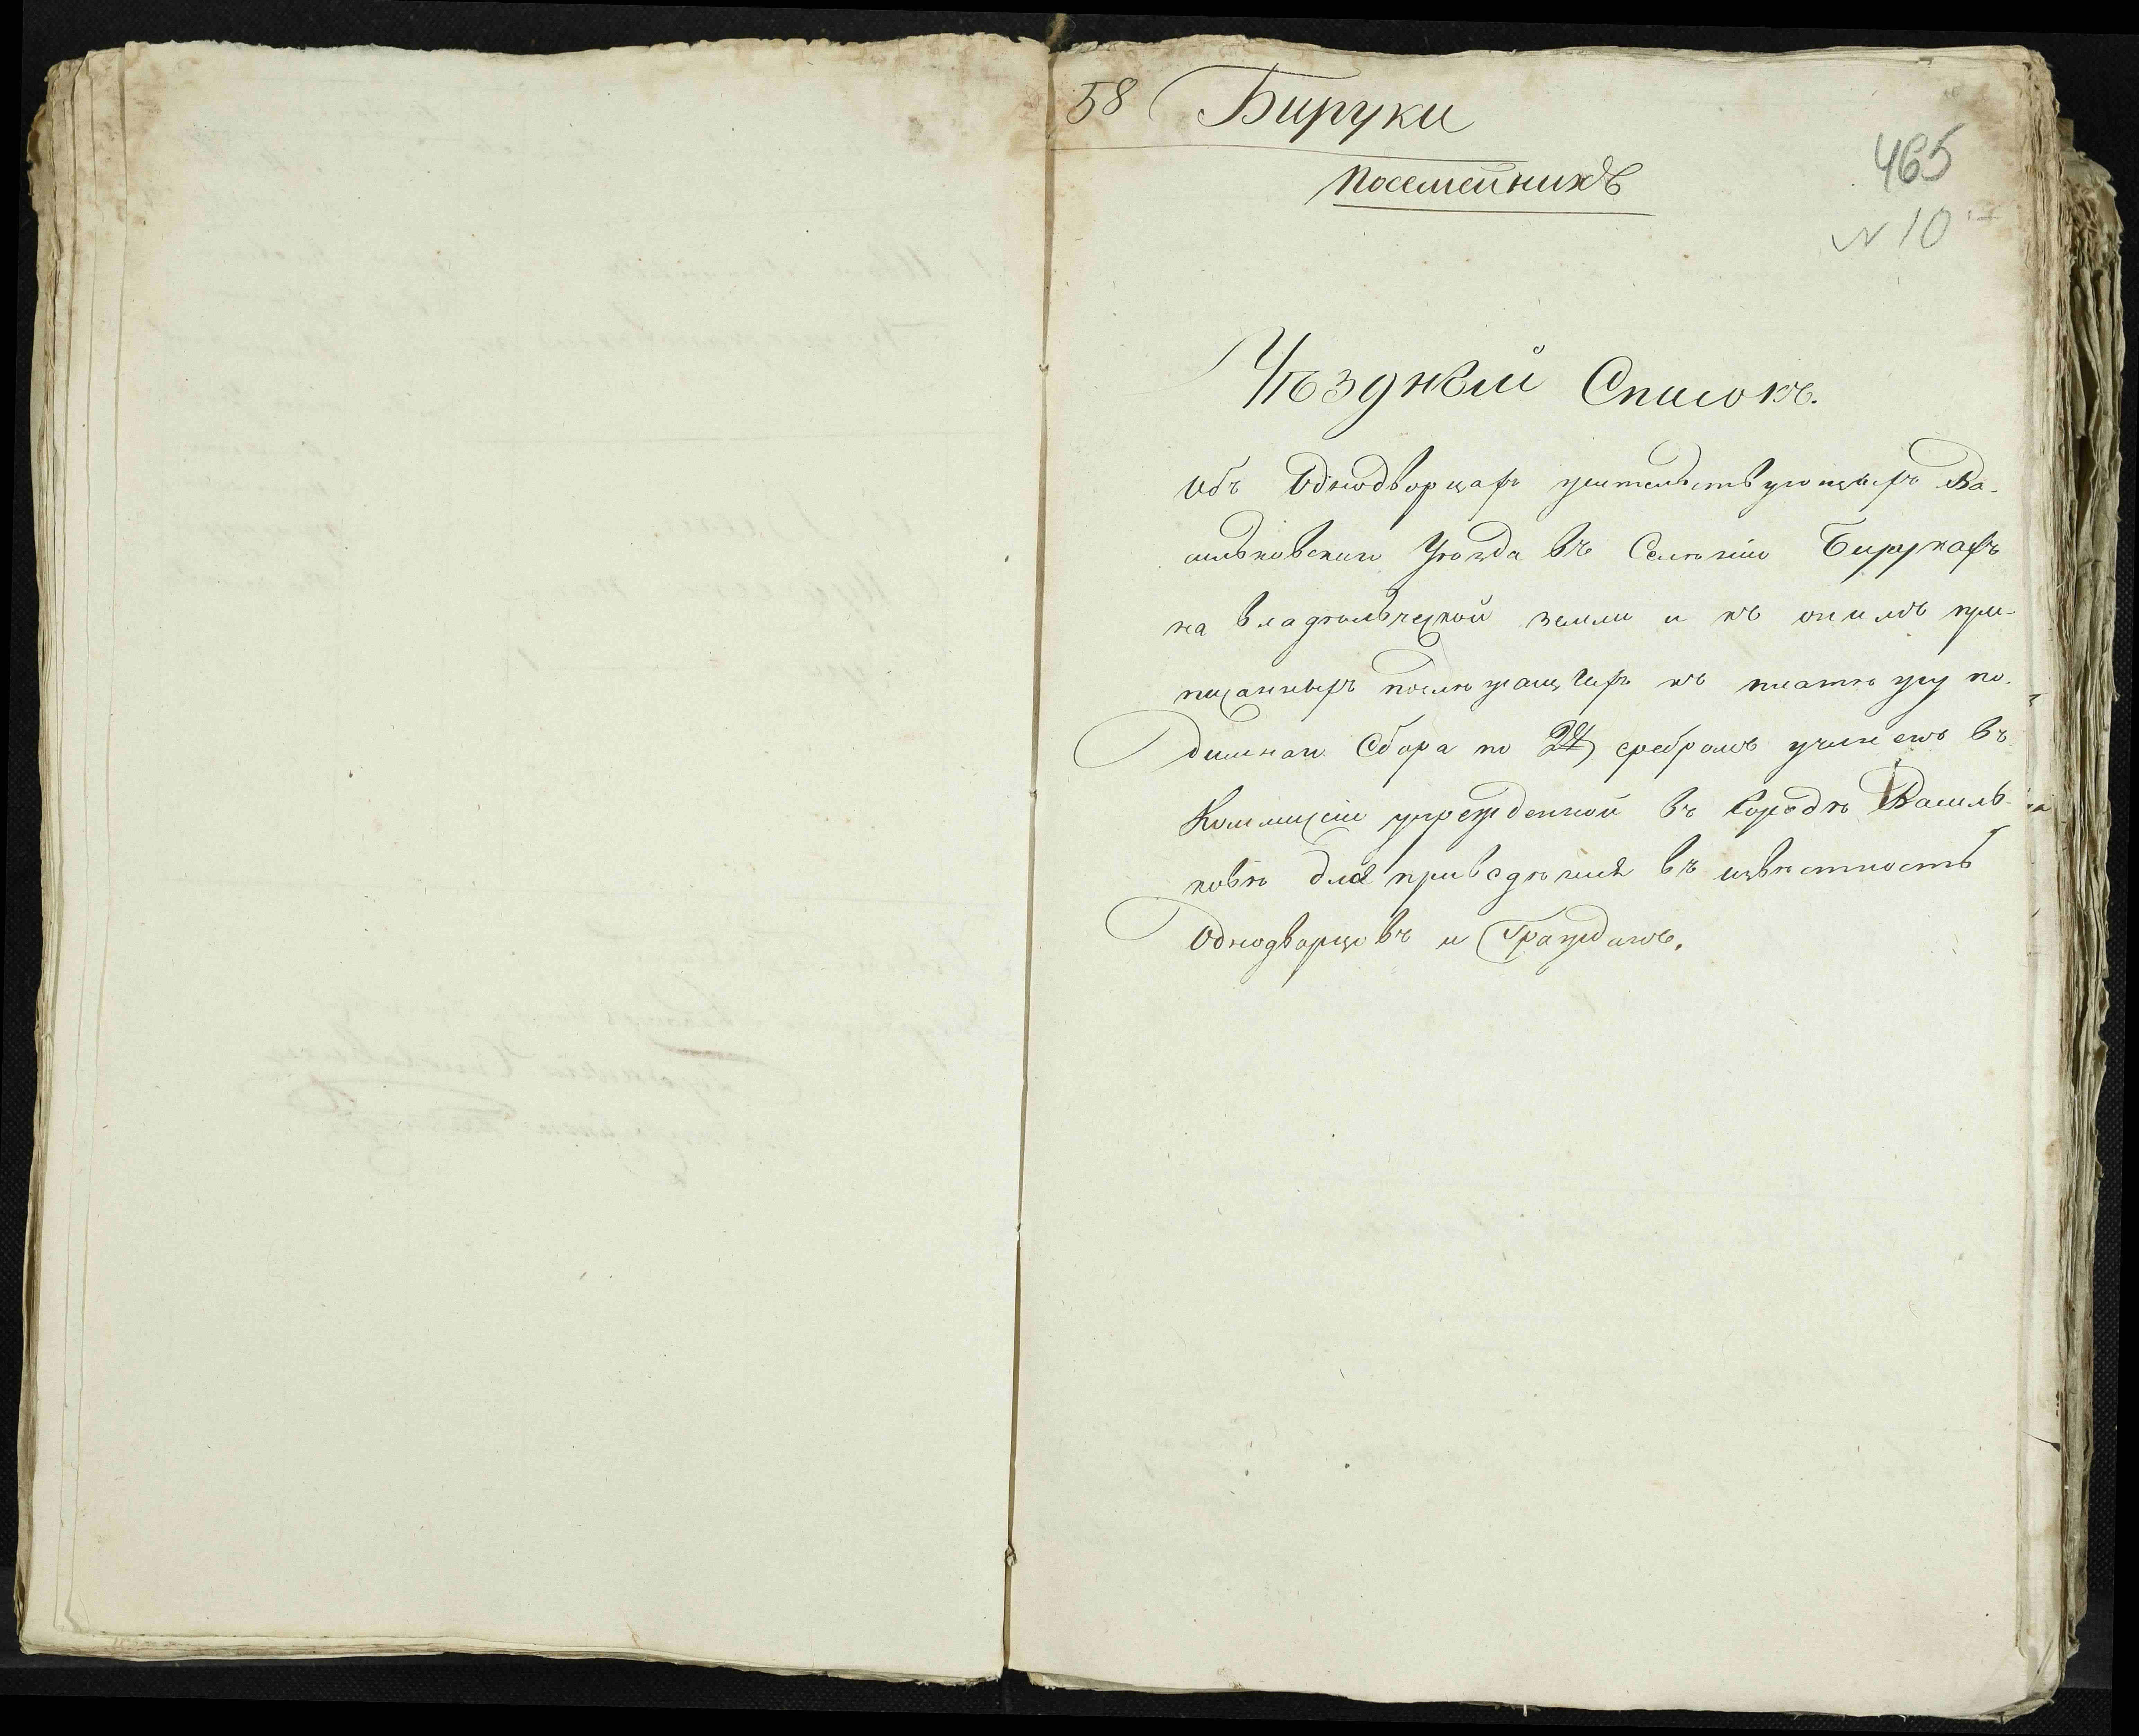 58 Бируки
посемейникъ
465
N 10
Уѣздный Списокъ.
Объ Однодворцахъ жительствующихъ Ва-
сильковскаго Уѣзда въ Селеніи Бирукахъ
на владѣльческой земли и къ онымъ при-
писанныхъ подлежащихъ къ платежу по-
дымнаго Сбора по сребромъ учиненъ въ
Коммиссіи учрежденной въ городѣ Василь-
ковѣ для приведенія въ извѣстность
Однодворцовъ и Гражданъ.